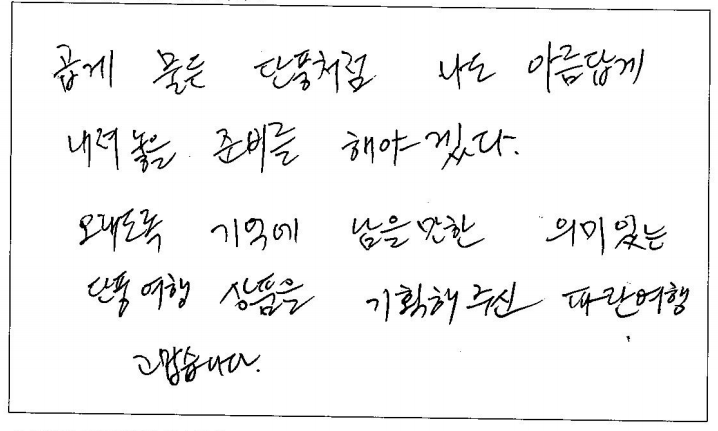 곱게 물든 단풍처럼 나도 아름답게
내려놓을 준비를 해야겠다.
오래도록 기억에 남을만한 의미있는
단풍여행 상품을 기획해주신 파란여행
고맙습니다.